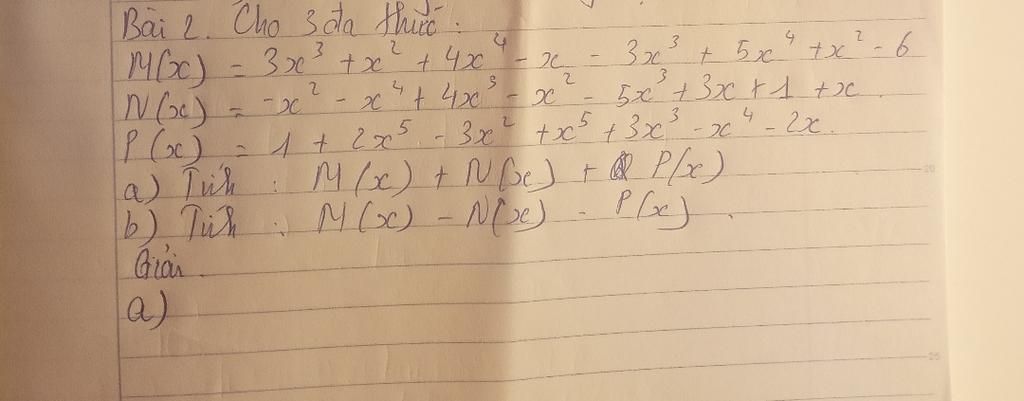 Bài 2. Cho 3 đa thức:
M(x) = 3x³ + x² + 4x⁴ - x - 3x³ + 5x⁴ + x² - 6
N(x) = -x² - x⁴ + 4x³ - x² - 5x³ + 3x + 1 + x.
P(x) = 1 + 2x⁵ - 3x² + x⁵ + 3x³ - x⁴ - 2x.
a) Tính : M(x) + N(x) + P(x)
b) Tính : M(x) - N(x) - P(x).
Giải.
a)